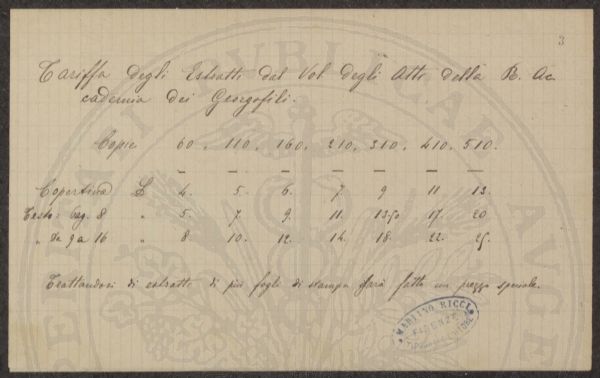 3
Tariffa degli Estratti dal Vol degli Atti della R. Ac
cademia dei Georgofili.
Copie 60. 110. 160. 210. 310. 410. 510.
Copertina £ 4. 5. 6. 7 9 11 13.
Testo: Pag. 8 " 5. 7. 9. 11. 13.50 17. 20
" da 9 a 16 " 8. 10. 12. 14. 18. 22. 25.
Trattandosi di estratti di più fogli di stampa sarà fatto un prezzo speciale.
MARIANO RICCI
FIRENZE